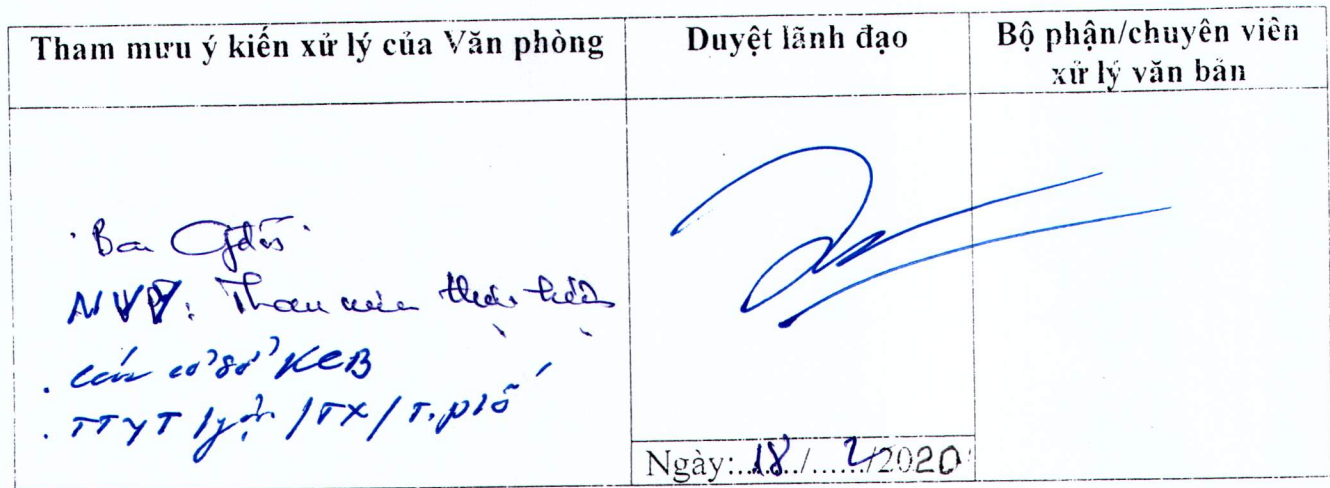 Tham mưu ý kiến xử lý của Văn phòng
Duyệt lãnh đạo
Bộ phận/chuyên viên
xử lý văn bản
Ban Gđốc
NVP: Tham mưu thực hiện
. Các cơ sở KCB
. TTYT /TX/T.phố
Ngày:..18../...2/2020